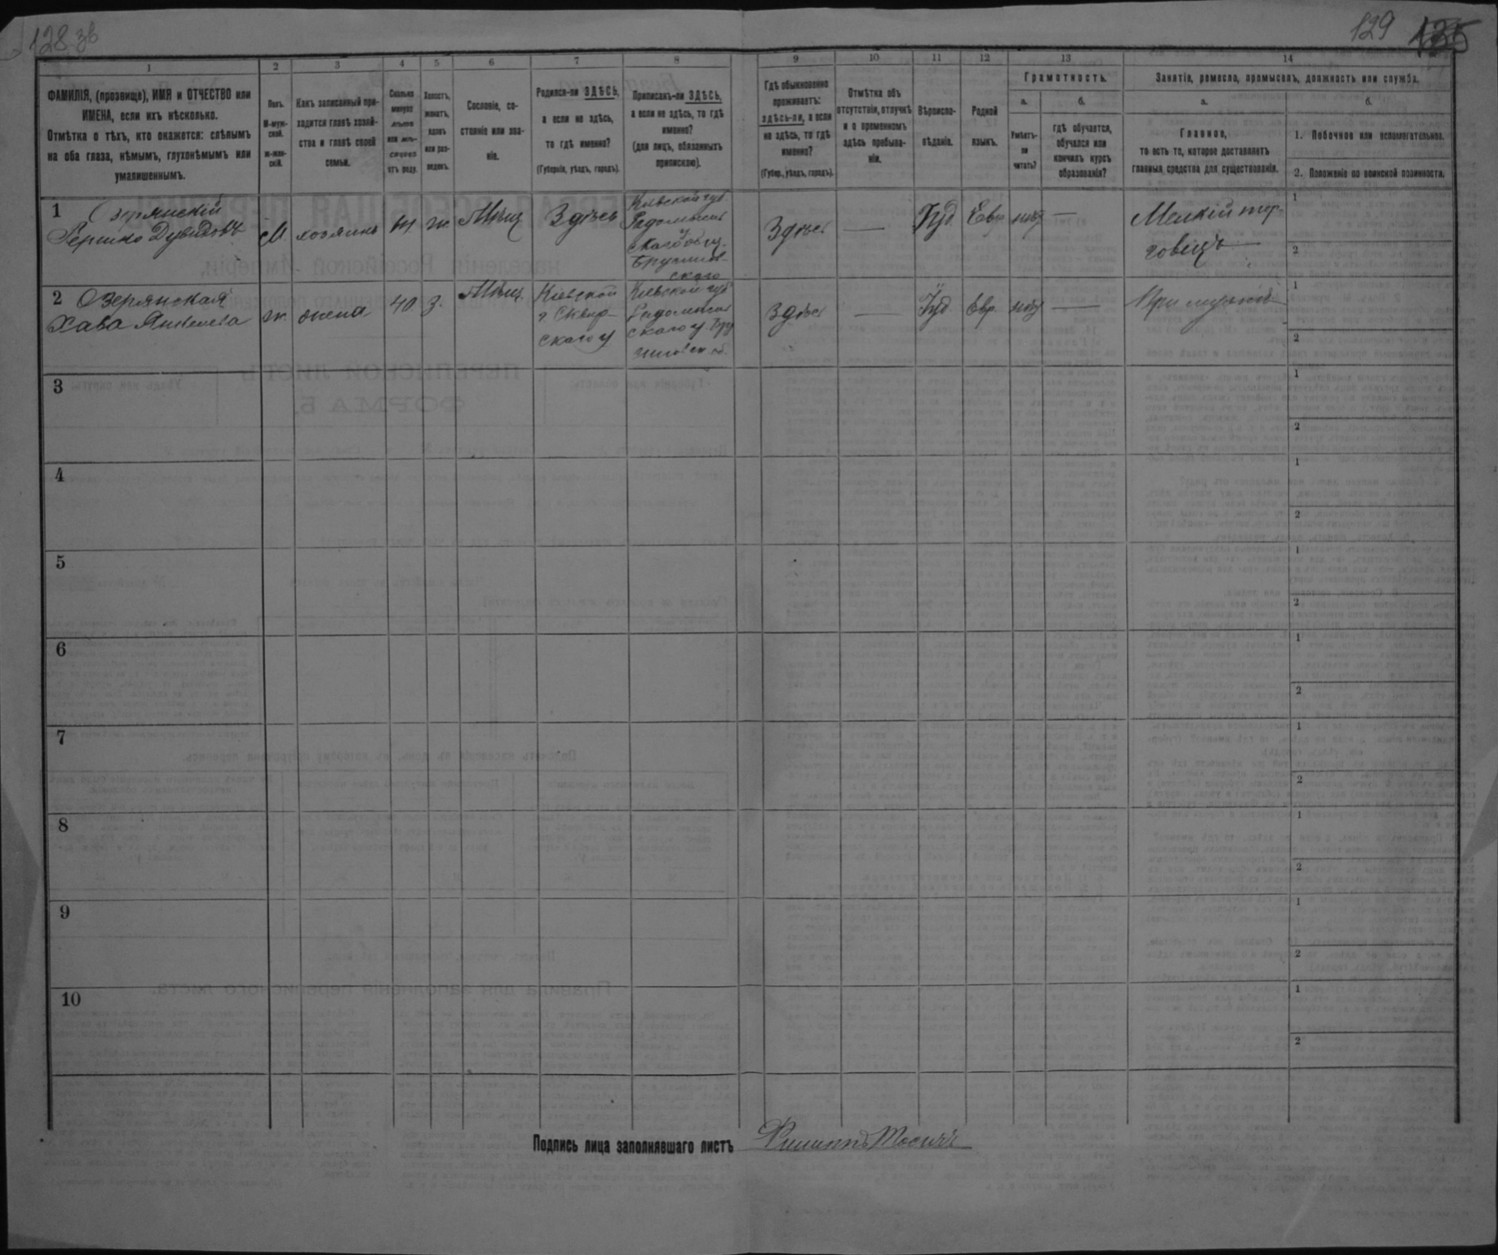 128 зв
129
135
1
2
3
4
5
6
7
8
9
10
11
12
13
14
ФАМИЛІЯ, (прозвище), ИМЯ и ОТЧЕСТВО или
ИМЕНА, если ихъ нѣсколько.
Отмѣтка о тѣхъ, кто окажется: слѣпымъ
на оба глаза, нѣмымъ, глухонѣмымъ или
умалишеннымъ.
Полъ.
М-муж-
ской.
ж-жен-
скій.
Какъ записанный при-
ходится главѣ хозяй-
ства и главѣ своей
семьи.
Сколько
минуло
лѣтъ
или мѣ-
сяцевъ
отъ роду.
Холостъ,
женатъ,
вдовъ
или раз-
веденъ.
Сословіе, со-
стояніе или зва-
ніе.
Родился-ли ЗДѢСЬ,
а если не здѣсь,
то гдѣ именно?
(Губернія, уѣздъ, городъ).
Приписанъ-ли ЗДѢСЬ,
а если не здѣсь, то гдѣ
именно?
(для лицъ, обязанныхъ
припискою).
Гдѣ обыкновенно
проживаетъ:
здѣсь-ли, а если
не здѣсь, то гдѣ
именно?
(Губер., уѣздъ, городъ).
Отмѣтка объ
отсутствіи, отлучкѣ
и о временномъ
здѣсь пребыва-
ніи.
Вѣроиспо-
вѣданіе.
Родной
языкъ.
Грамотность.
а.
б.
Умѣетъ-
ли
читать?
гдѣ обучается,
обучался или
кончилъ курсъ
образованія?
Занятіе, ремесло, промыселъ, должность или служба.
а.
б.
Главное,
то есть то, которое доставляетъ
главныя средства для существованія.
1. Побочное или вспомогательное.
2. Положеніе по воинской повинности.
1 Озерянскій
Гершко Дувидовъ
М
хозяинъ
ж
Мѣщ
Здѣсь
Кіевской губ
Радомысль
скаго у
Брусилов
скаго
Здѣсь
—
Іуд
Евр
нѣт
—
Мелкій тор
говецъ
1
2
2 Озерянская
Хава Янкелева
ж.
жена
40
з.
Мѣщ.
Кіевской
г Сквир-
скаго у
Кіевской губ
Радомысль
скаго у
здѣсь
—
Іуд
Евр.
нѣт
—
При мужѣ
1
2
3
1
2
4
1
2
5
1
2
6
1
2
7
1
2
8
1
2
9
1
2
10
1
2
Подпись лица заполнявшаго листъ